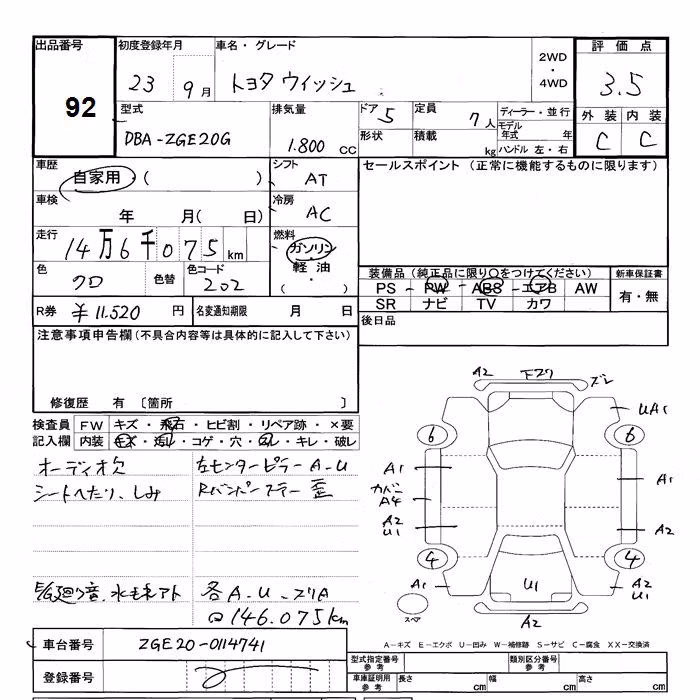 出品番号 初度登録年月 車名・グレード 2WD・4WD 評価点
92 23 9月 トヨタ ウィッシュ 3.5
型式 排気量 ドア 5 定員 7人 ディーラー・並行 外装 内装
DBA-ZGE20G 1.800 CC 形状 積載 kg モデル年式 年 C C
ハンドル 左・右
車歴 自家用・( ) シフト AT セールスポイント (正常に機能するものに限ります)
車検 年 月( 日) 冷房 AC
走行 14万6千075km 燃料 ガソリン 軽油 ( ・ )
色 クロ 色替 色コード 202 装備品(純正品に限り○をつけてください) 新車保証書
PS - PW - ABS - エアB AW 有・無
SR ナビ TV カワ
R券 ¥11.520 円 名変通知期限 月 日 後日品
注意事項申告欄(不具合内容等は具体的に記入して下さい)
修復歴 有 〔箇所 〕
検査員 FW キズ・飛石・ヒビ割・リペア跡・×要
記入欄 内装 キズ・汚レ・コゲ・穴・スレ・キレ・破レ
オーディオ欠 左センターピラーA-U
シートへたり、しみ Rバンパーステー歪
水モレアト 各A-U-スリA
146.075km
A2 下スリ ズレ
UA1
6 6
A1 A1
カバー A4
A2 U1 A2
4 4
A1 U1 A2 U1
スペア A2
A-キズ E-エクボ U-凹み W-補修跡 S-サビ C-腐食 XX-交換済
車台番号 ZGE20-0114741
登録番号
型式指定番号 参考 類別区分番号 参考
車庫証明用 参考 長さ cm 幅 cm 高さ cm